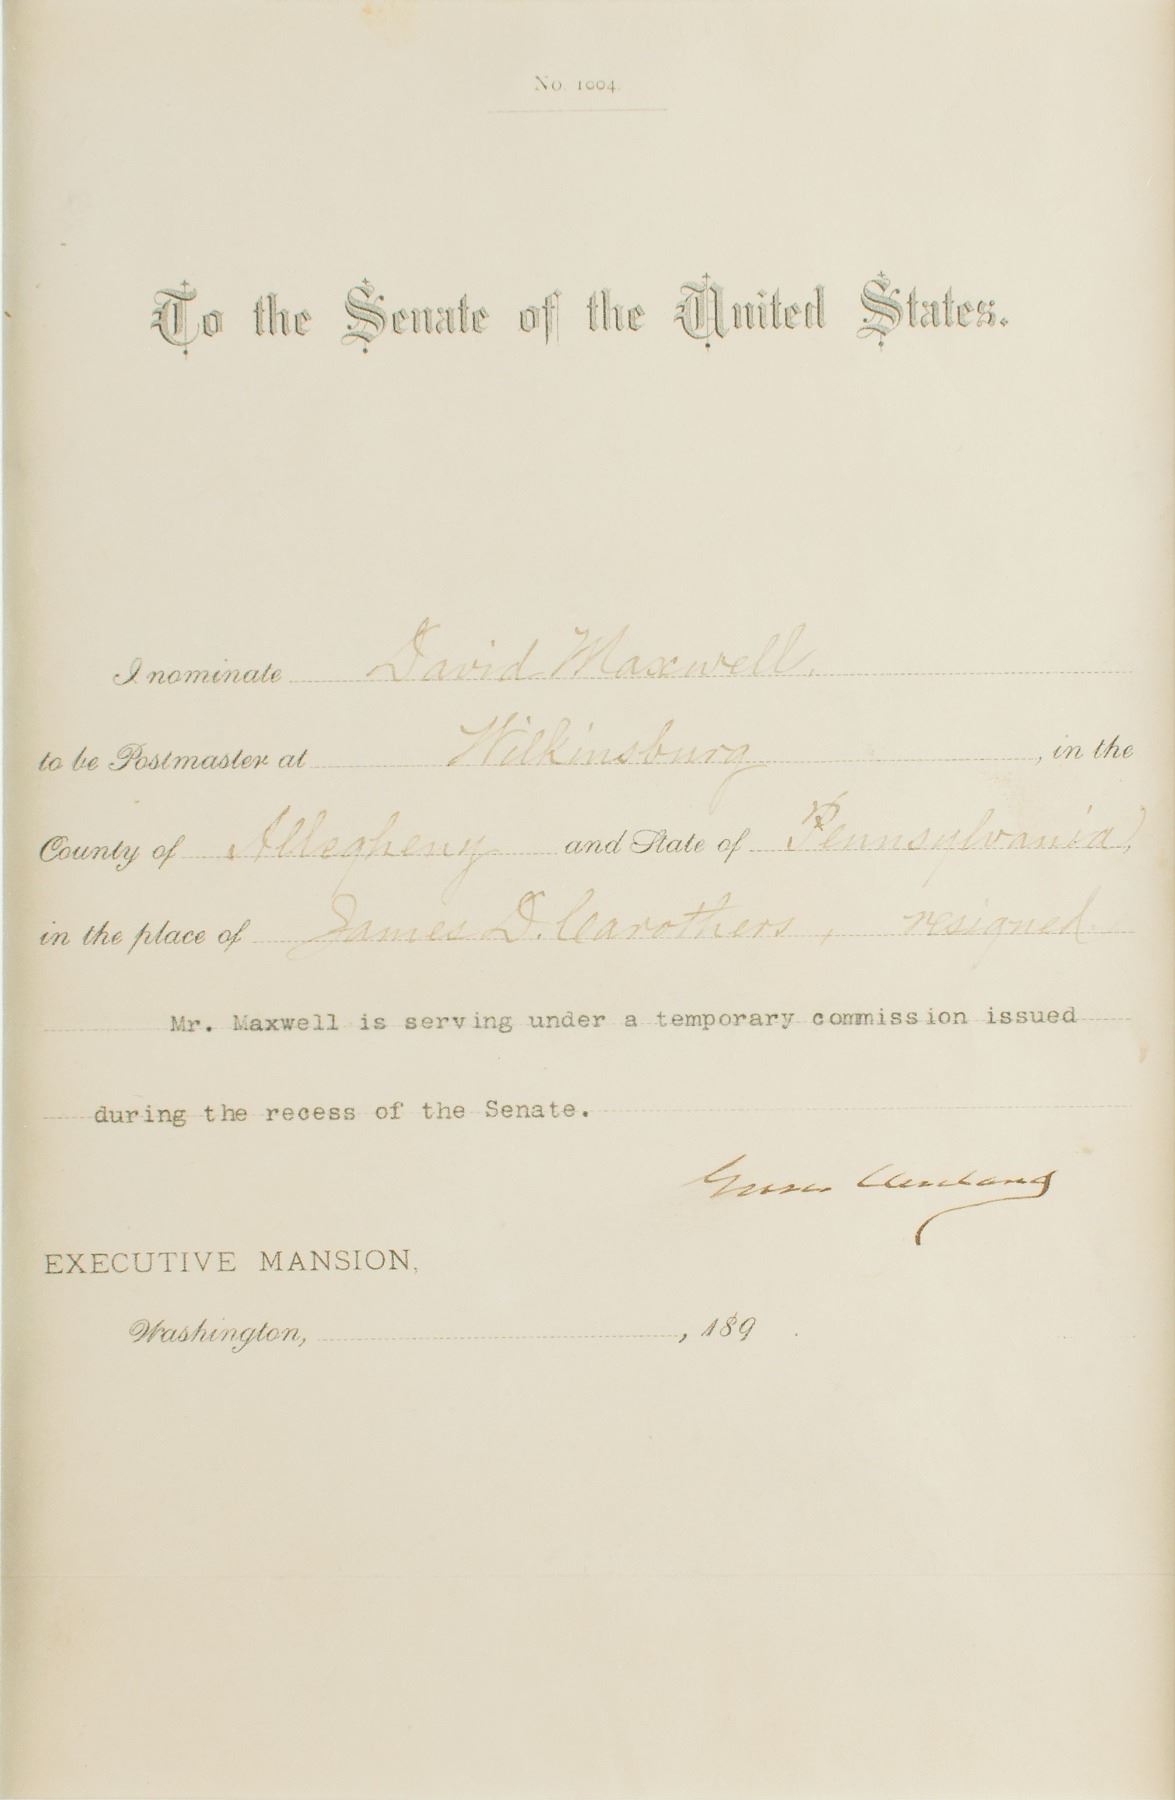 No. 1004.
To the Senate of the United States.
I nominate David Maxwell,
to be Postmaster at Wilkinsburg, in the
County of Allegheny and State of Pennsylvania,
in the place of James D. Carothers, resigned.
Mr. Maxwell is serving under a temporary commission issued
during the recess of the Senate.
Grover Cleveland
EXECUTIVE MANSION,
Washington, , 189 .